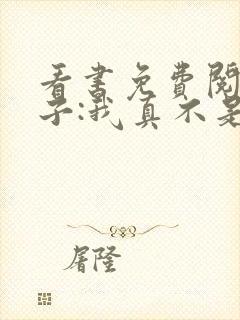 看书免費閱
子:我真不是
屠隆